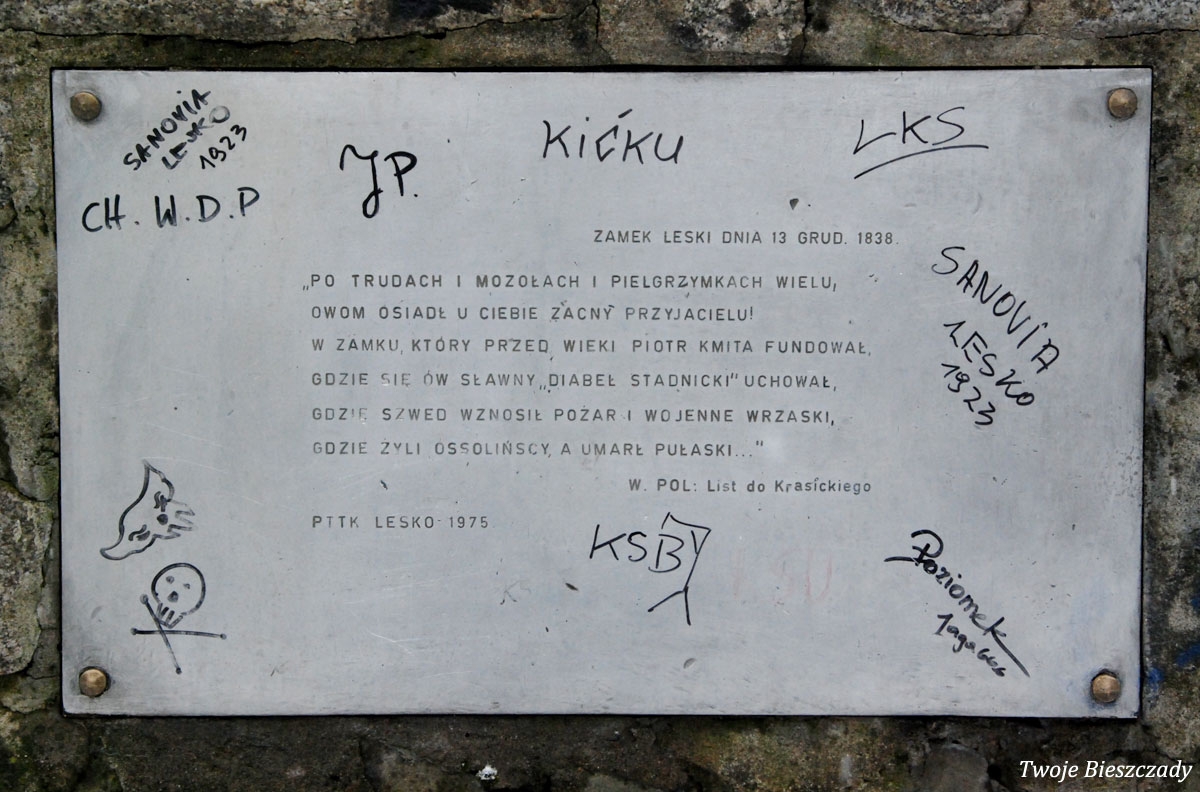 SANOVIA
LESKO
1923
CH. W. D. P
JP.
KIĆKU
LKS
ZAMEK LESKI DNIA 13 GRUD. 1838.
„PO TRUDACH I MOZOŁACH I PIELGRZYMKACH WIELU,
OWOM OSIADŁ U CIEBIE ZACNY PRZYJACIELU!
W ZAMKU, KTÓRY PRZED WIEKI PIOTR KMITA FUNDOWAŁ,
GDZIE SIĘ ÓW SŁAWNY „DIABEŁ STADNICKI" UCHOWAŁ,
GDZIE SZWED WZNOSIŁ POŻAR I WOJENNE WRZASKI,
GDZIE ŻYLI OSSOLIŃSCY, A UMARŁ PUŁASKI..."
W. POL: List do Krasickiego
PTTK LESKO-1975.
SANOVIA
LESKO
1923
KSB
KS
Poziomek
Twoje Bieszczady